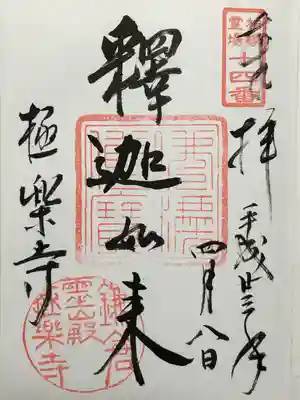 奉拝
平成廿三年
四月八日
霊場
十四番
釋迦如来
佛法僧寶
極楽寺
鎌倉
靈山殿
極樂寺